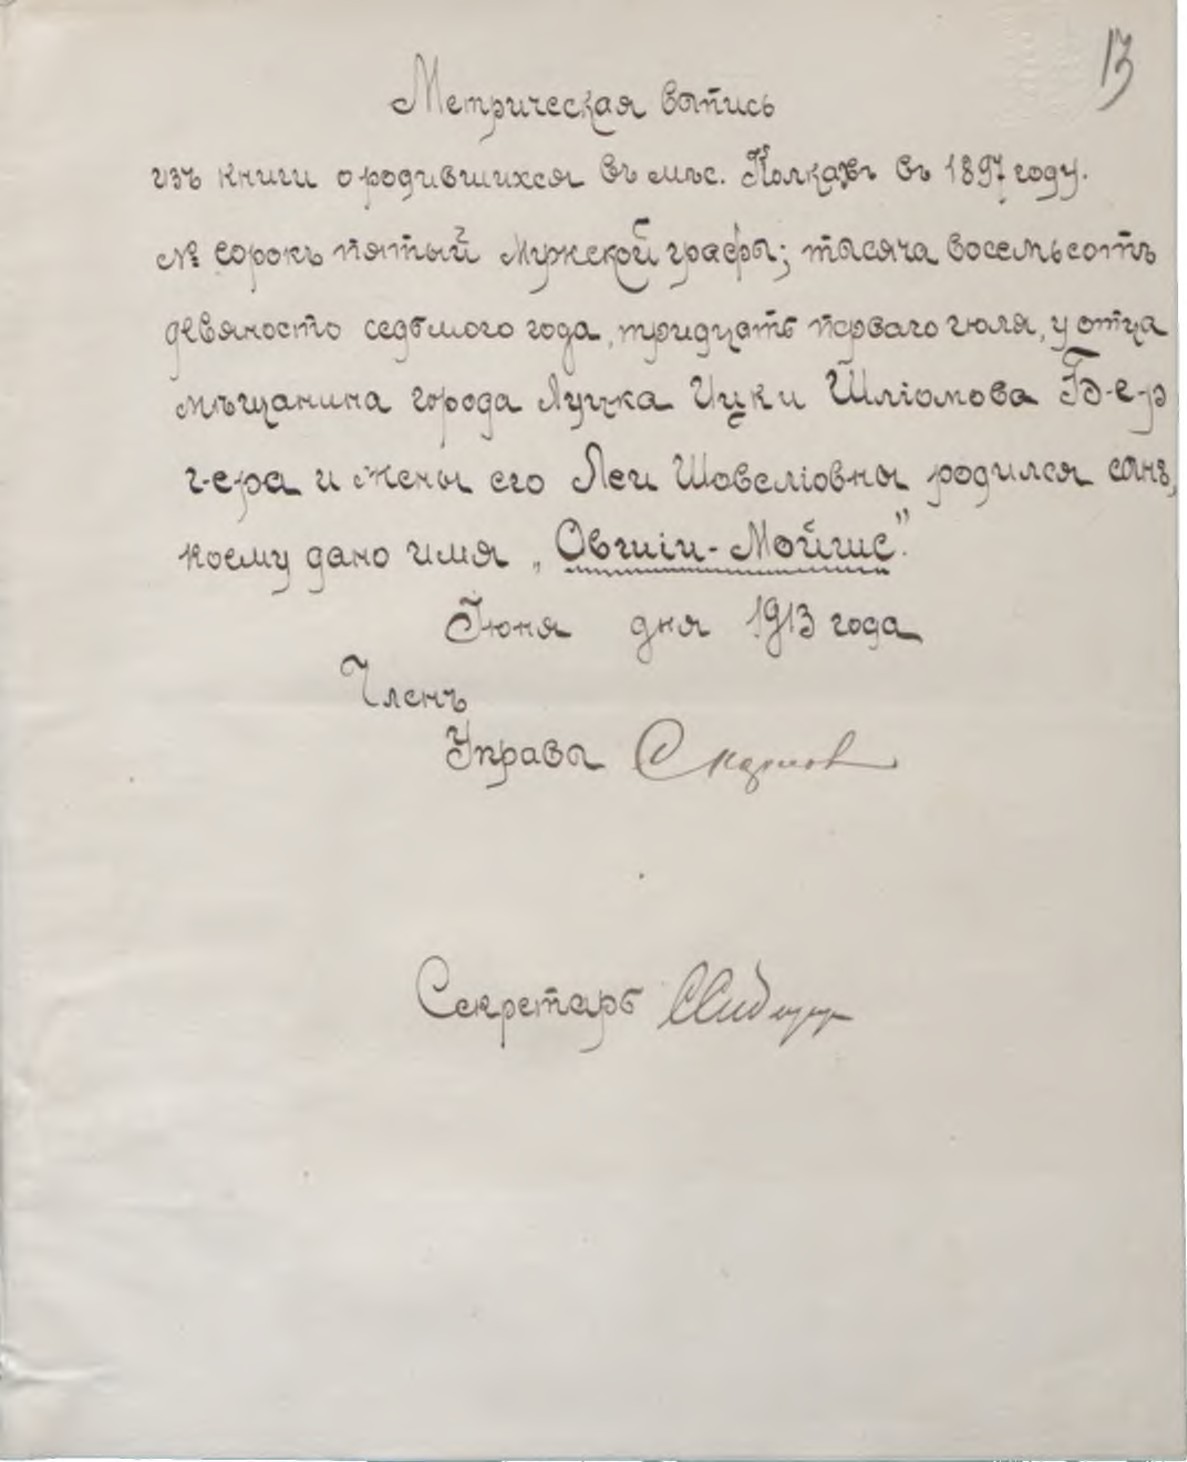 13
Метрическая выпись
изъ книги о родившихся въ мѣс. Колкахъ въ 1897 году.
№ сорокъ пятый Мужской графы; тысяча восемьсотъ
девяносто седьмого года, тридцать перваго іюля, у отца
мѣщанина города Луцка Ицки Шліомова Б-е-р
г-е-ра и жены его Леи Шовеліовны родился сынъ,
коему дано имя „Овшій-Мойше".
Іюня дня 1913 года
Членъ
Управы
Секретарь